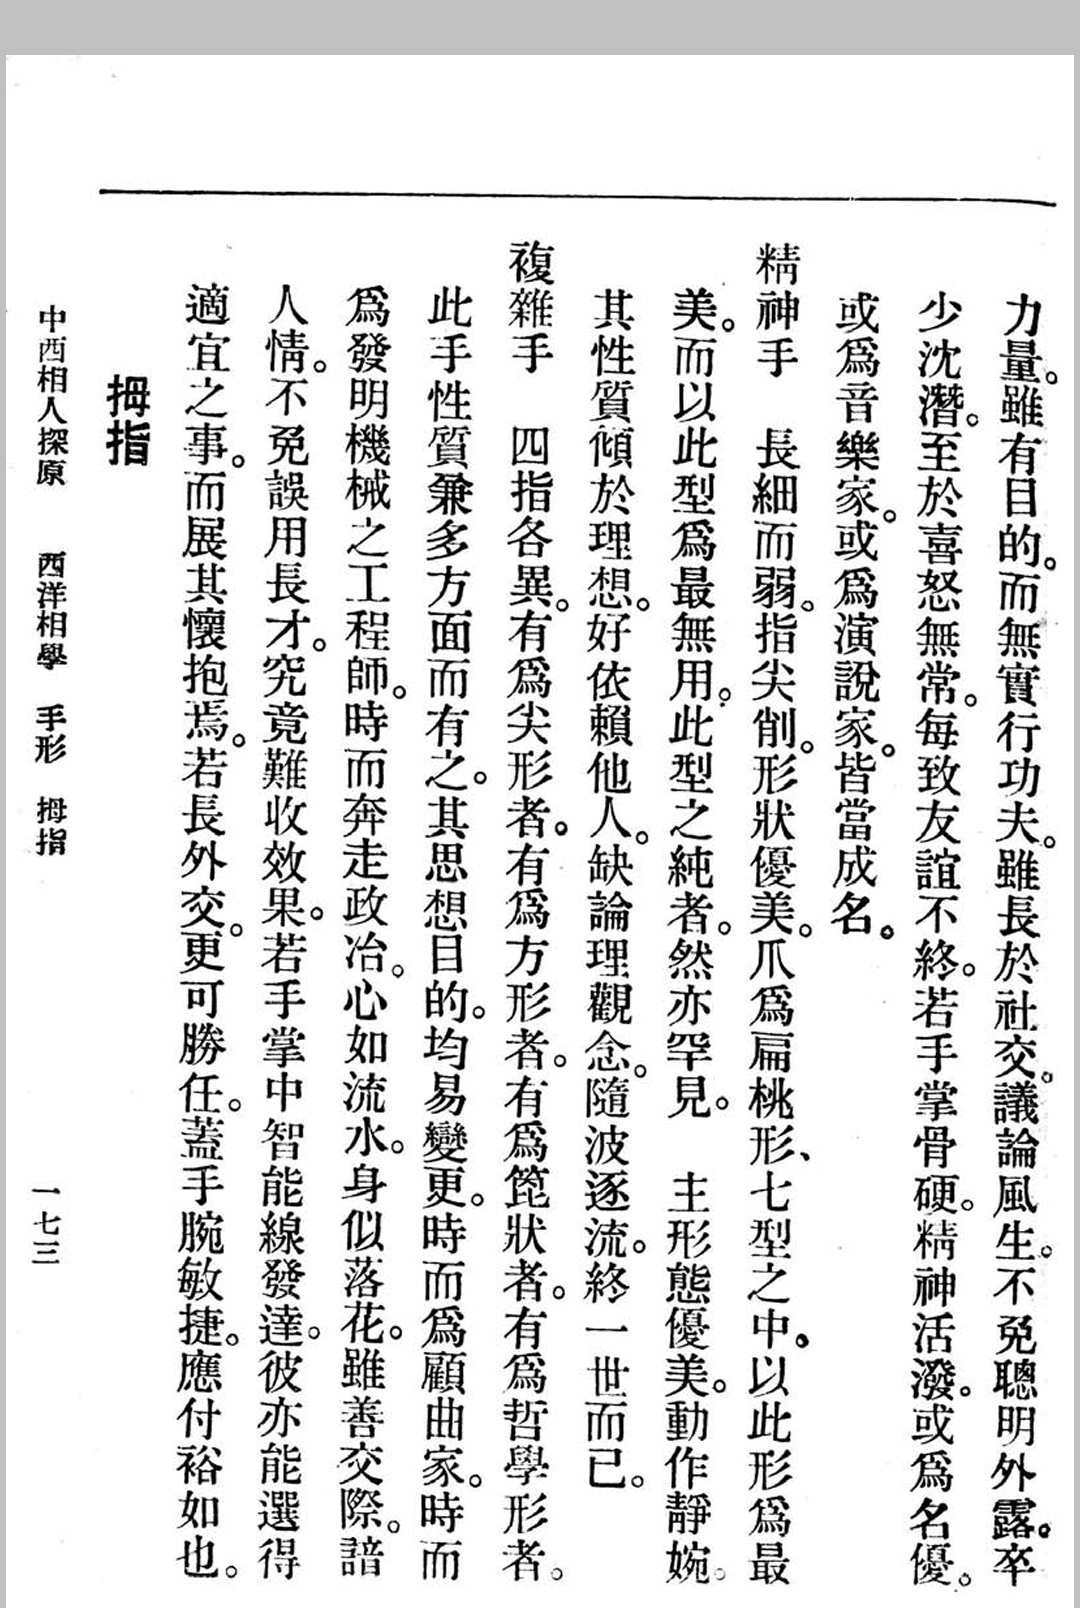 力量。雖有目的。而無實行功夫。雖長於社交。議論風生。不免聰明外露。卒
少沈潛。至於喜怒無常。每致友誼不終。若手掌骨硬。精神活潑。或爲名優。
或爲音樂家。或爲演說家。皆當成名。
精神手　長細而弱。指尖削。形狀優美。爪爲扁桃形、七型之中。以此形爲最
美。而以此型爲最無用。此型之純者。然亦罕見。　主形態優美。動作靜婉。
其性質傾於理想。好依賴他人。缺論理觀念。隨波逐流。終一世而已。
複雜手　四指各異。有爲尖形者。有爲方形者。有爲箆狀者。有爲哲學形者。
此手性質兼多方面而有之。其思想目的。均易變更。時而爲顧曲家。時而
爲發明機械之工程師。時而奔走政冶。心如流水。身似落花。雖善交際。諳
人情。不免誤用長才。究竟難收效果。若手掌中智能線發達。彼亦能選得
適宜之事。而展其懷抱焉。若長外交。更可勝任。蓋手腕敏捷。應付裕如也。
拇指
中西相人探原　西洋相學　手形　拇指
一七三